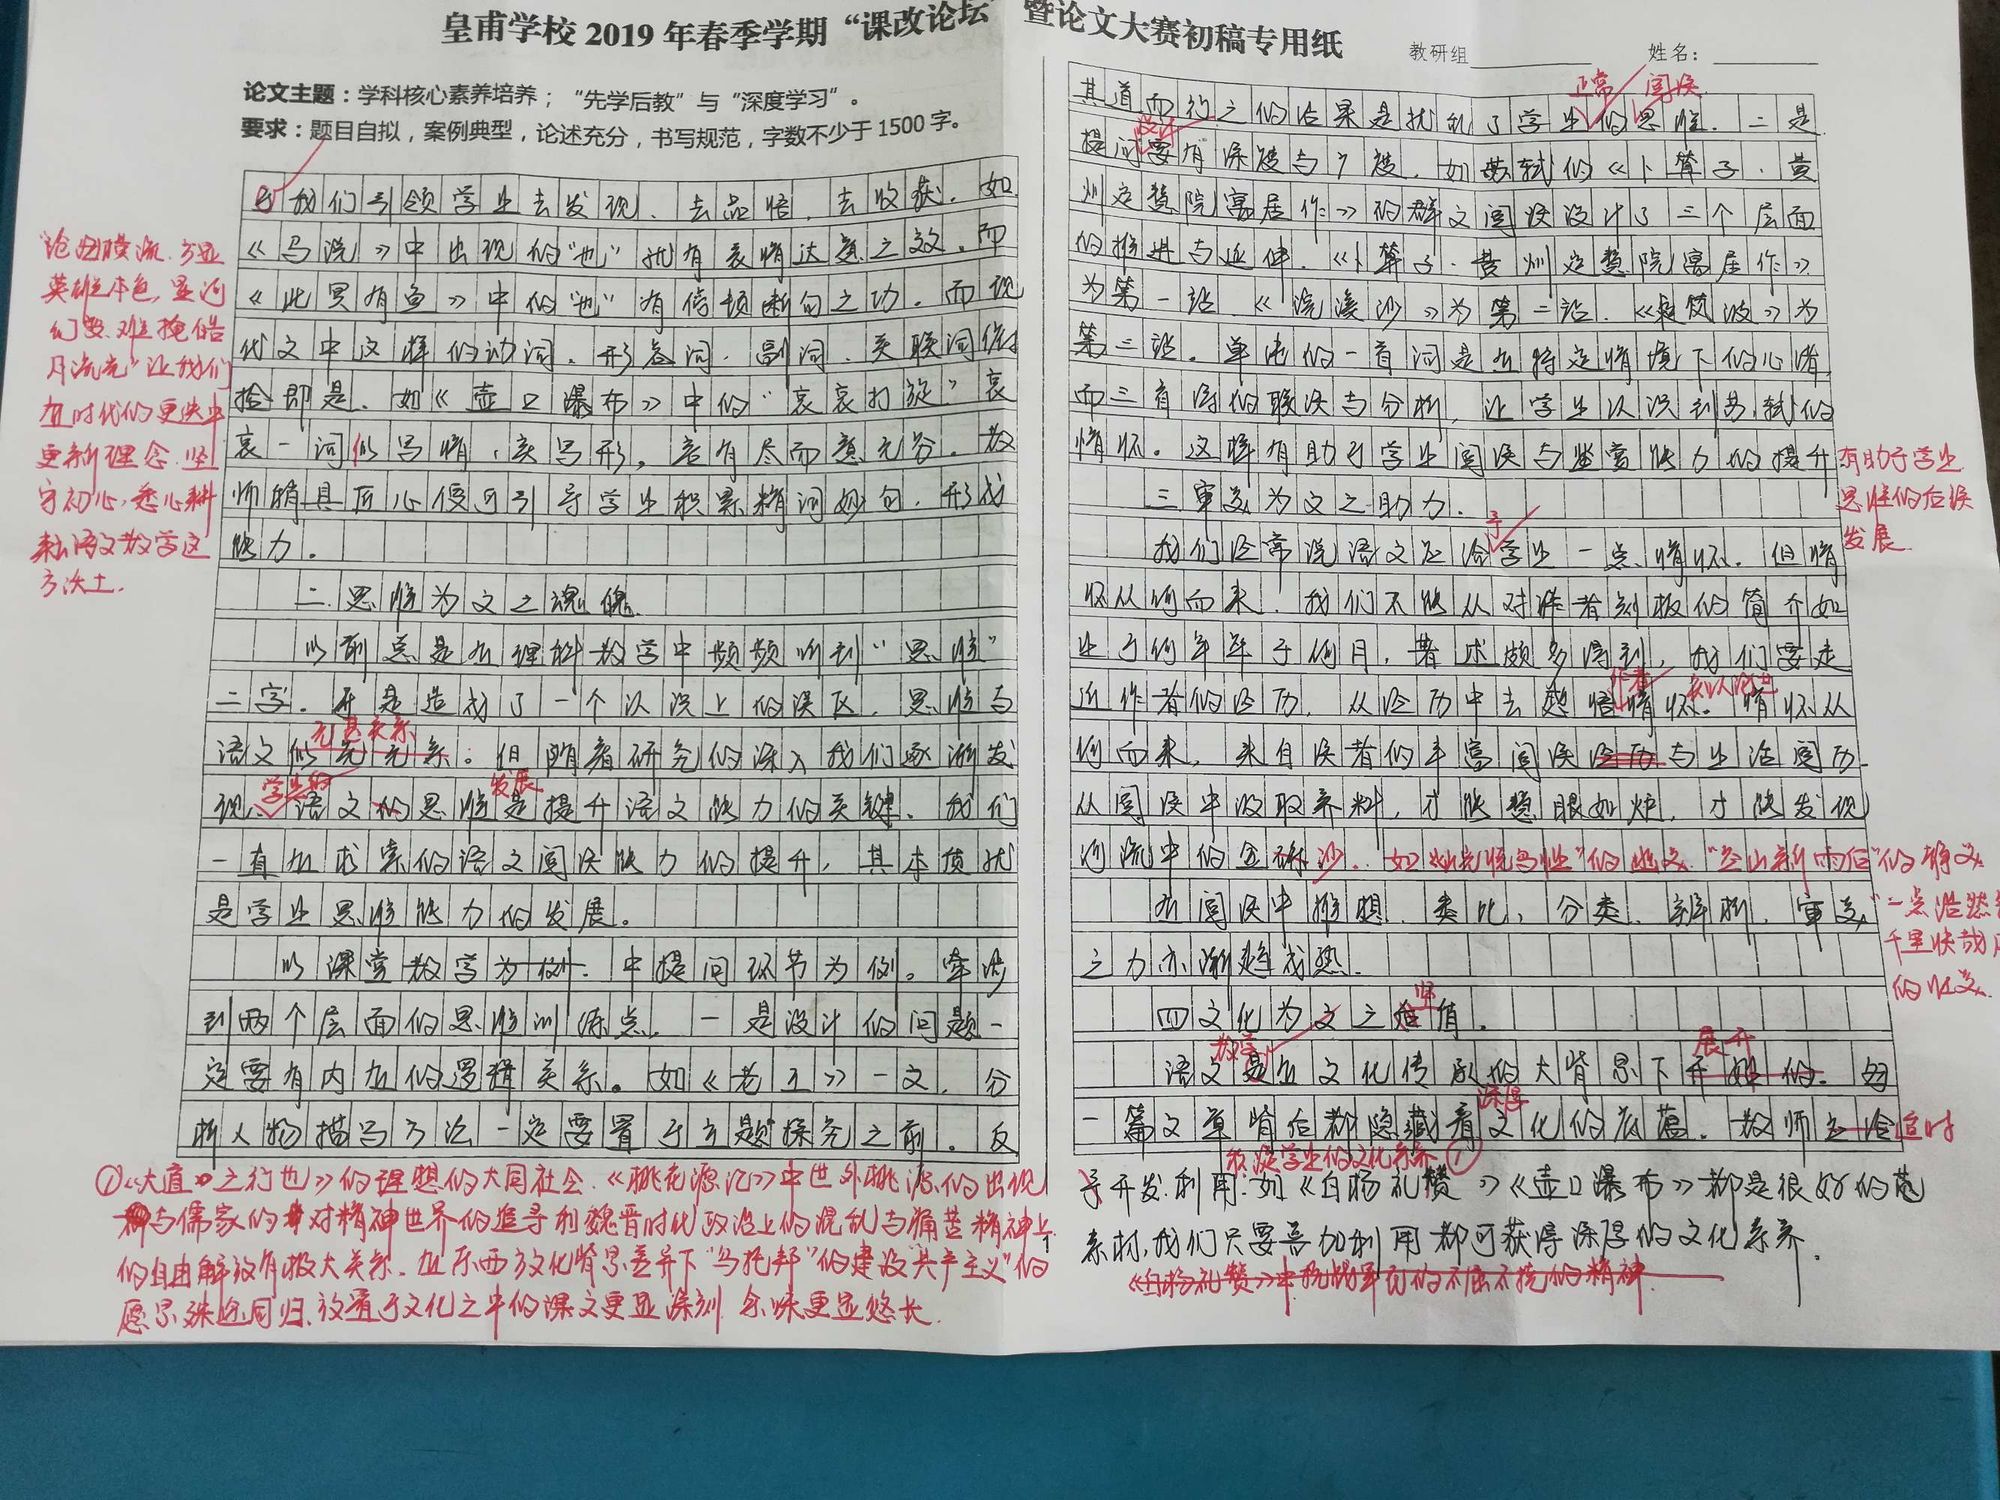 皇甫学校2019年春季学期“课改论坛”暨论文大赛初稿专用纸
教研组 姓名：
论文主题：学科核心素养培养；“先学后教”与“深度学习”。
要求：题目自拟，案例典型，论述充分，书写规范，字数不少于1500字。
我们引领学生去发现、去品悟、去收获。如
《马说》中出现的“也”就有表情达意之效。而
《此冥有鱼》中的“也”有停顿断句之功。而现
代文中这样的动词、形容词、副词、关联词俯
拾即是。如《壶口瀑布》中的“哀哀打旋”哀
哀一词似写情，实写形，言有尽而意无穷。教
师稍具匠心便可引导学生积累精词妙句，形成
能力。
二.思维为文之魂魄
以前总是在理科教学中频频听到“思维”
二字。于是造成了一个认识上的误区，思维与
语文似无关系；但随着研究的深入我们逐渐发
无甚关系
现、语文的思维是提升语文能力的关键。我们
学生的
发展
一直在求索的语文阅读能力的提升，其本质就
是学生思维能力的发展。
以课堂教学为例.中提问环节为例。牵涉
到两个层面的思维训练点。一是设计的问题一
定要有内在的逻辑关系。如《老王》一文，分
析人物描写方法一定要置于主题探究之前。反
沧海横流，方显
英雄本色，星河
们变，难掩皓
月流光”让我们
在时代的更迭中
更新理念，坚
守初心，悉心耕
耘语文教学这
方沃土.
①《大道之行也》的理想的大同社会、《桃花源记》中世外桃源的出现
与儒家的对精神世界的追寻和魏晋时代政治上的混乱与痛苦精神上
的自由解放有极大关系，在东西方文化背景差异下“乌托邦”的建设“共产主义”的
愿景殊途同归，放置于文化之中的课文更显深刻，余味更显悠长.
正常 阅读
其道而行之的后果是扰乱了学生的思维.二是
设计
提问要有深度与广度.如苏轼的《卜算子·黄
州定慧院寓居作》的群文阅读设计了三个层面
的推进与延伸.《卜算子·黄州定慧院寓居作》
为第一站.《浣溪沙》为第二站.《定风波》为
第三站。单纯的一首词是在特定情境下的心绪，
而三首词的联读与分析，让学生认识到苏轼的
情怀。这样有助于学生阅读与鉴赏能力的提升
有助于学生
思维的后续
发展.
三审美为文之助力.
予
我们经常说语文应给学生一点情怀.但情
怀从何而来.我们不能从对作者刻板的简介如
生于何年卒于何月，著述颇多得到，我们要走
近作者的经历，从经历中去感悟情怀。情怀从
作者
何而来，来自读者的丰富阅读经历与生活阅历.
从阅读中汲取养料，才能慧眼如炬，才能发现
河流中的金砾沙.
“空山新雨后”的静美
“一点浩然气
千里快哉风”
的壮美.
在阅读中推想、类比、分类、辨析，审美
之力亦渐趋成熟.
四文化为文之价值.
语文是在文化传承的大背景下开始的.每
教学
展开
一篇文章背后都隐藏着文化的底蕴.教师应给
深厚
适时
积淀学生的文化素养①
予开发利用.如《白杨礼赞》《壶口瀑布》都是很好的范
素材，我们只要善加利用都可获得深厚的文化素养.
《白杨礼赞》中抗战军民的不屈不挠的精神